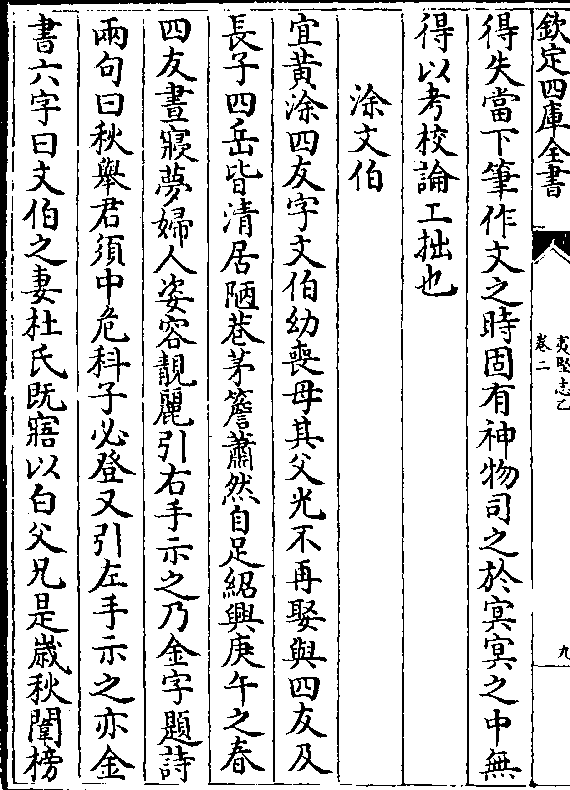 欽定四庫全書
夷堅志乙
卷二
九
得失當下筆作文之時固有神物司之於冥冥之中無
得以考校論工拙也
涂文伯
宜黃涂四友字文伯幼喪母其父光不再娶與四友及
長子四岳皆清居陋巷茅簷蕭然自足紹興庚午之春
四友晝寢夢婦人姿容靚麗引右手示之乃金字題詩
兩句曰秋舉君須中危科子必登又引左手示之亦金
書六字曰文伯之妻杜氏既寤以白父兄是歲秋闈榜